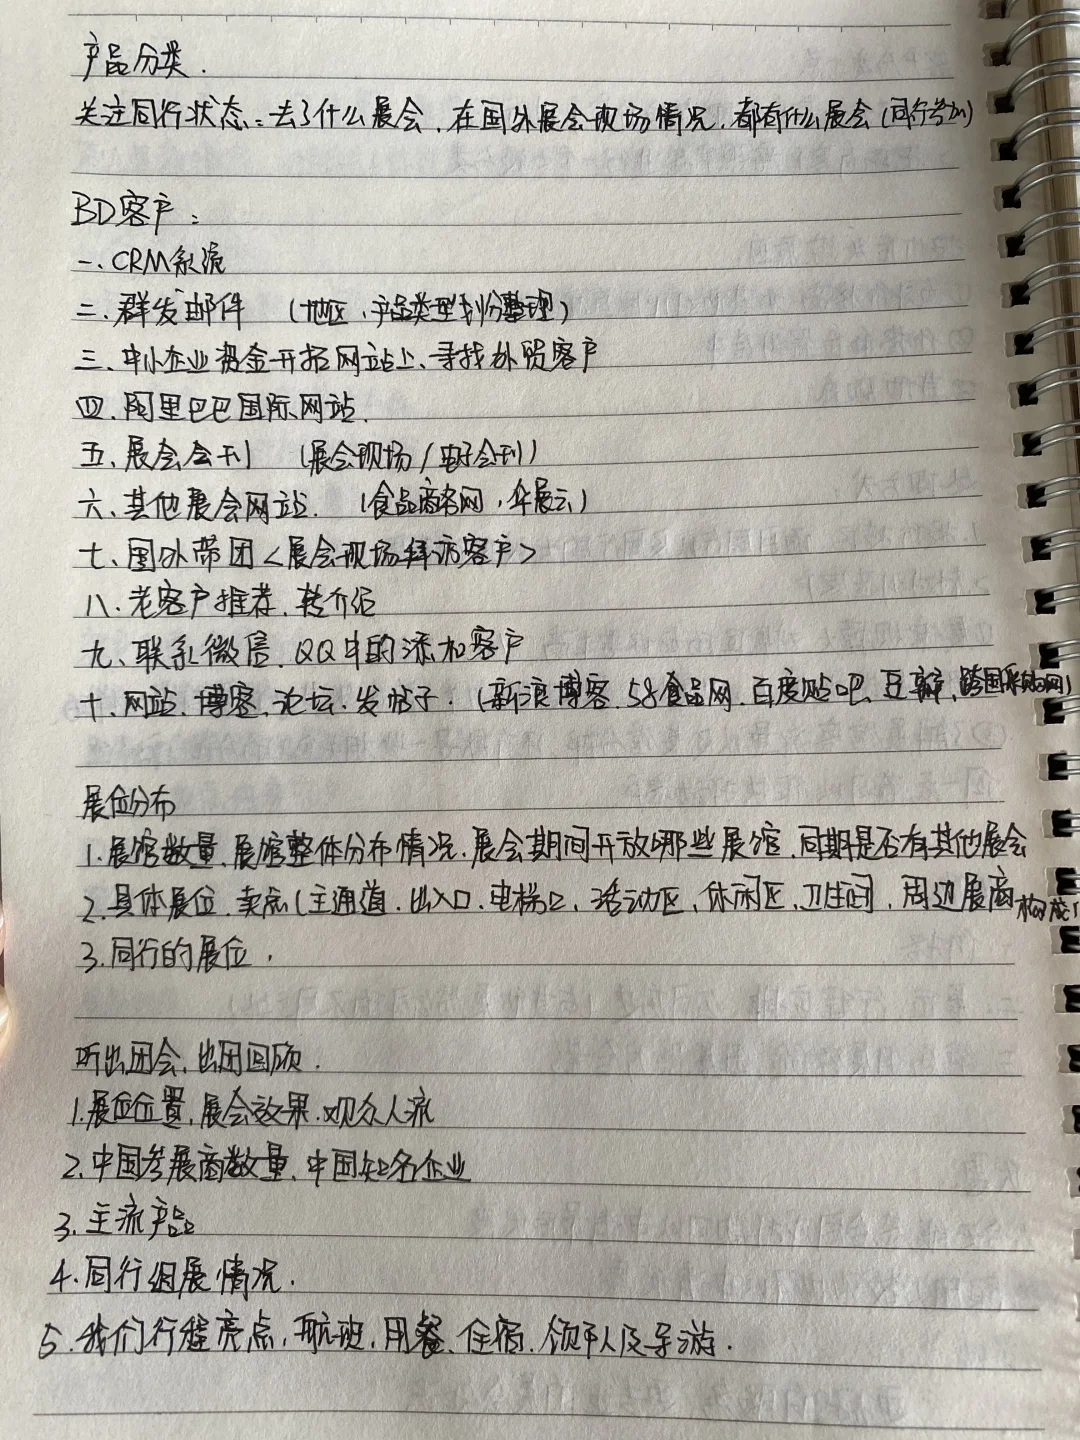 产品分类.
关注同行状态:去了什么展会、在国外展会现场情况、都有什么展会(同行参加)
BD客户:
一、CRM系统
二、群发邮件 (地区、产品类型划分整理)
三、中小企业资金开拓网站上、寻找外贸客户
四、阿里巴巴国际网站.
五、展会会刊 (展会现场/电子会刊)
六、其他展会网站. (食品商务网,华展云)
七、国外带团<展会现场拜访客户>
八、老客户推荐、转介绍
九、联系微信、QQ中的添加客户
十、网站、博客、论坛、发帖子. (新浪博客.58食品网.百度贴吧、豆瓣、跨国采购网)
展位分布
1.展馆数量、展馆整体分布情况、展会期间开放哪些展馆、同期是否有其他展会
2.具体展位、卖点(主通道、出入口、电梯口、活动区、休闲区、卫生间、周边展商构成)
3.同行的展位.
听出团会、出团回顾.
1.展位位置、展会效果.观众人流
2.中国参展商数量、中国知名企业
3.主流产品
4.同行组展情况.
5.我们行程亮点,航班,用餐、住宿、领队及导游.